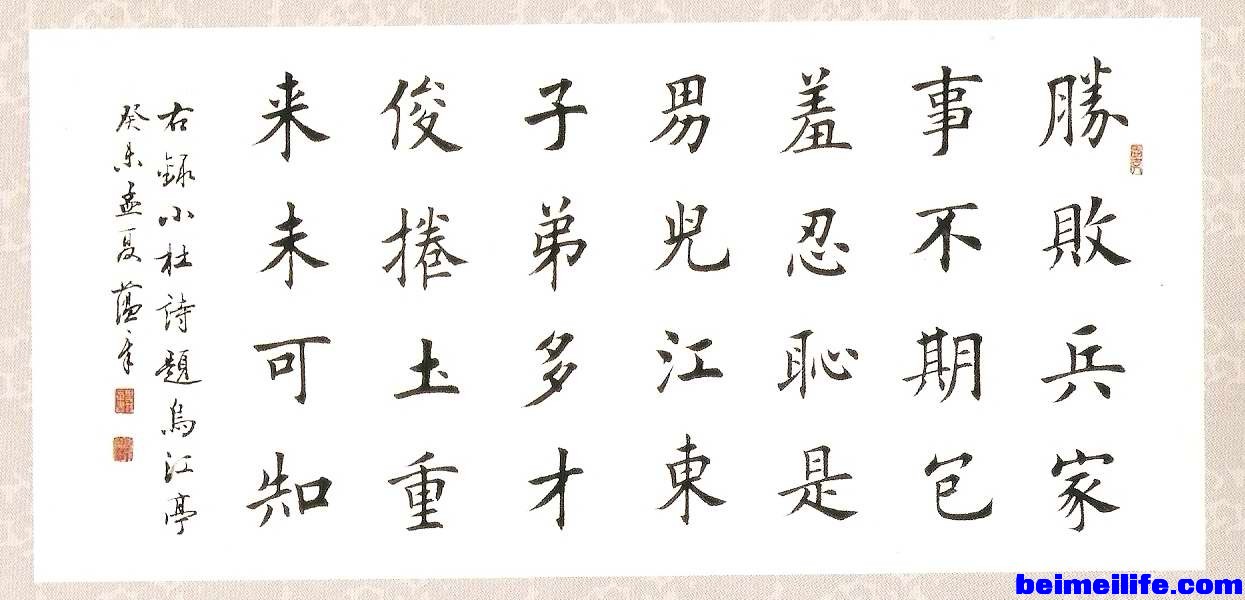 勝敗兵家
事不期包
羞忍恥是
男兒江東
子弟多才
俊捲土重
来未可知
右録小杜詩題烏江亭
癸未孟夏蘊章
beimeilife.com